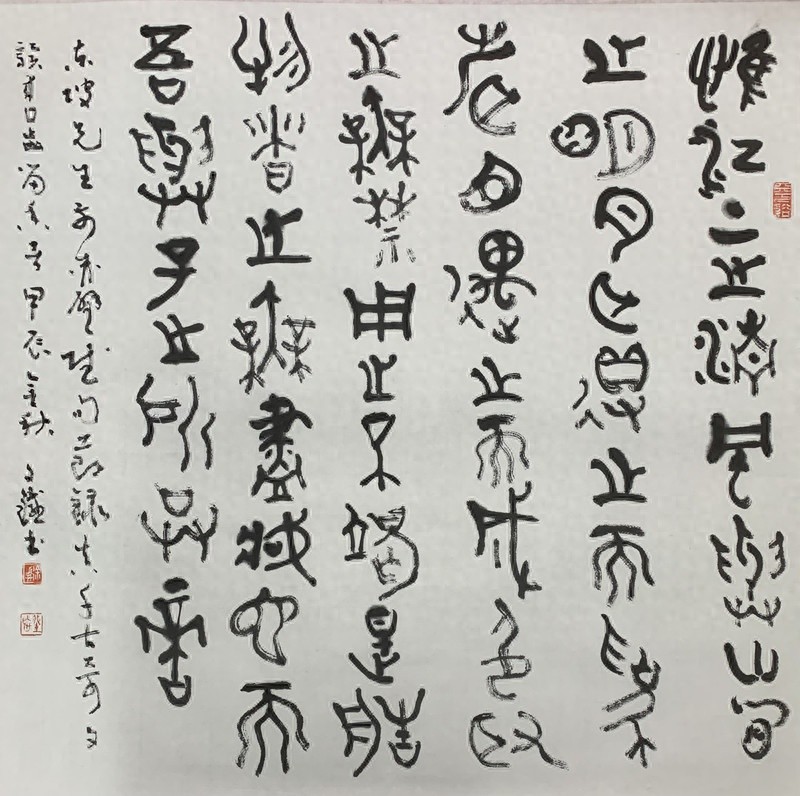 惟江上之清風與山間
之明月耳得之而為
聲目遇之而成色取
之無禁用之不竭是造
物者之無盡藏也而
吾與子之所共適
东坡先生前赤壁賦句節錄真千古奇文
讀口齒留香甲辰金秋書